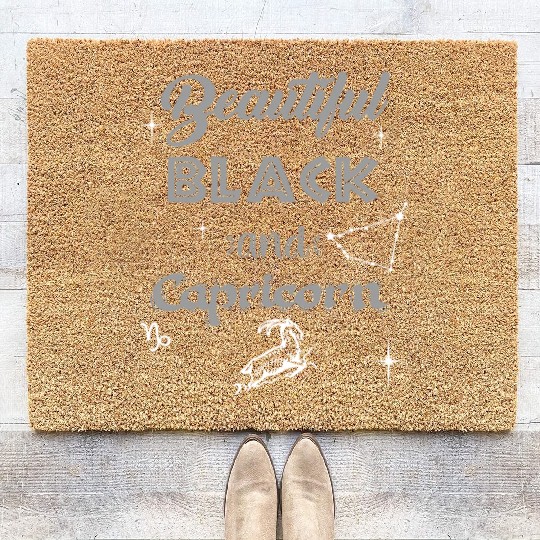 Beautiful
BLACK
and
Capricorn
♑